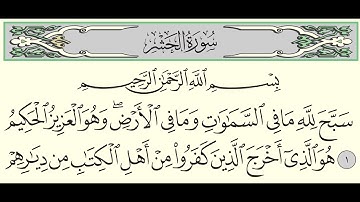 سُورَةُ الحَشْرِ
بِسْمِ ٱللَّهِ ٱلرَّحْمَٰنِ ٱلرَّحِيمِ
سَبَّحَ لِلَّهِ مَا فِي ٱلسَّمَٰوَٰتِ وَمَا فِي ٱلْأَرْضِۖ وَهُوَ ٱلْعَزِيزُ ٱلْحَكِيمُ
١ هُوَ ٱلَّذِيٓ أَخْرَجَ ٱلَّذِينَ كَفَرُواْ مِنْ أَهْلِ ٱلْكِتَٰبِ مِن دِيَٰرِهِمْ